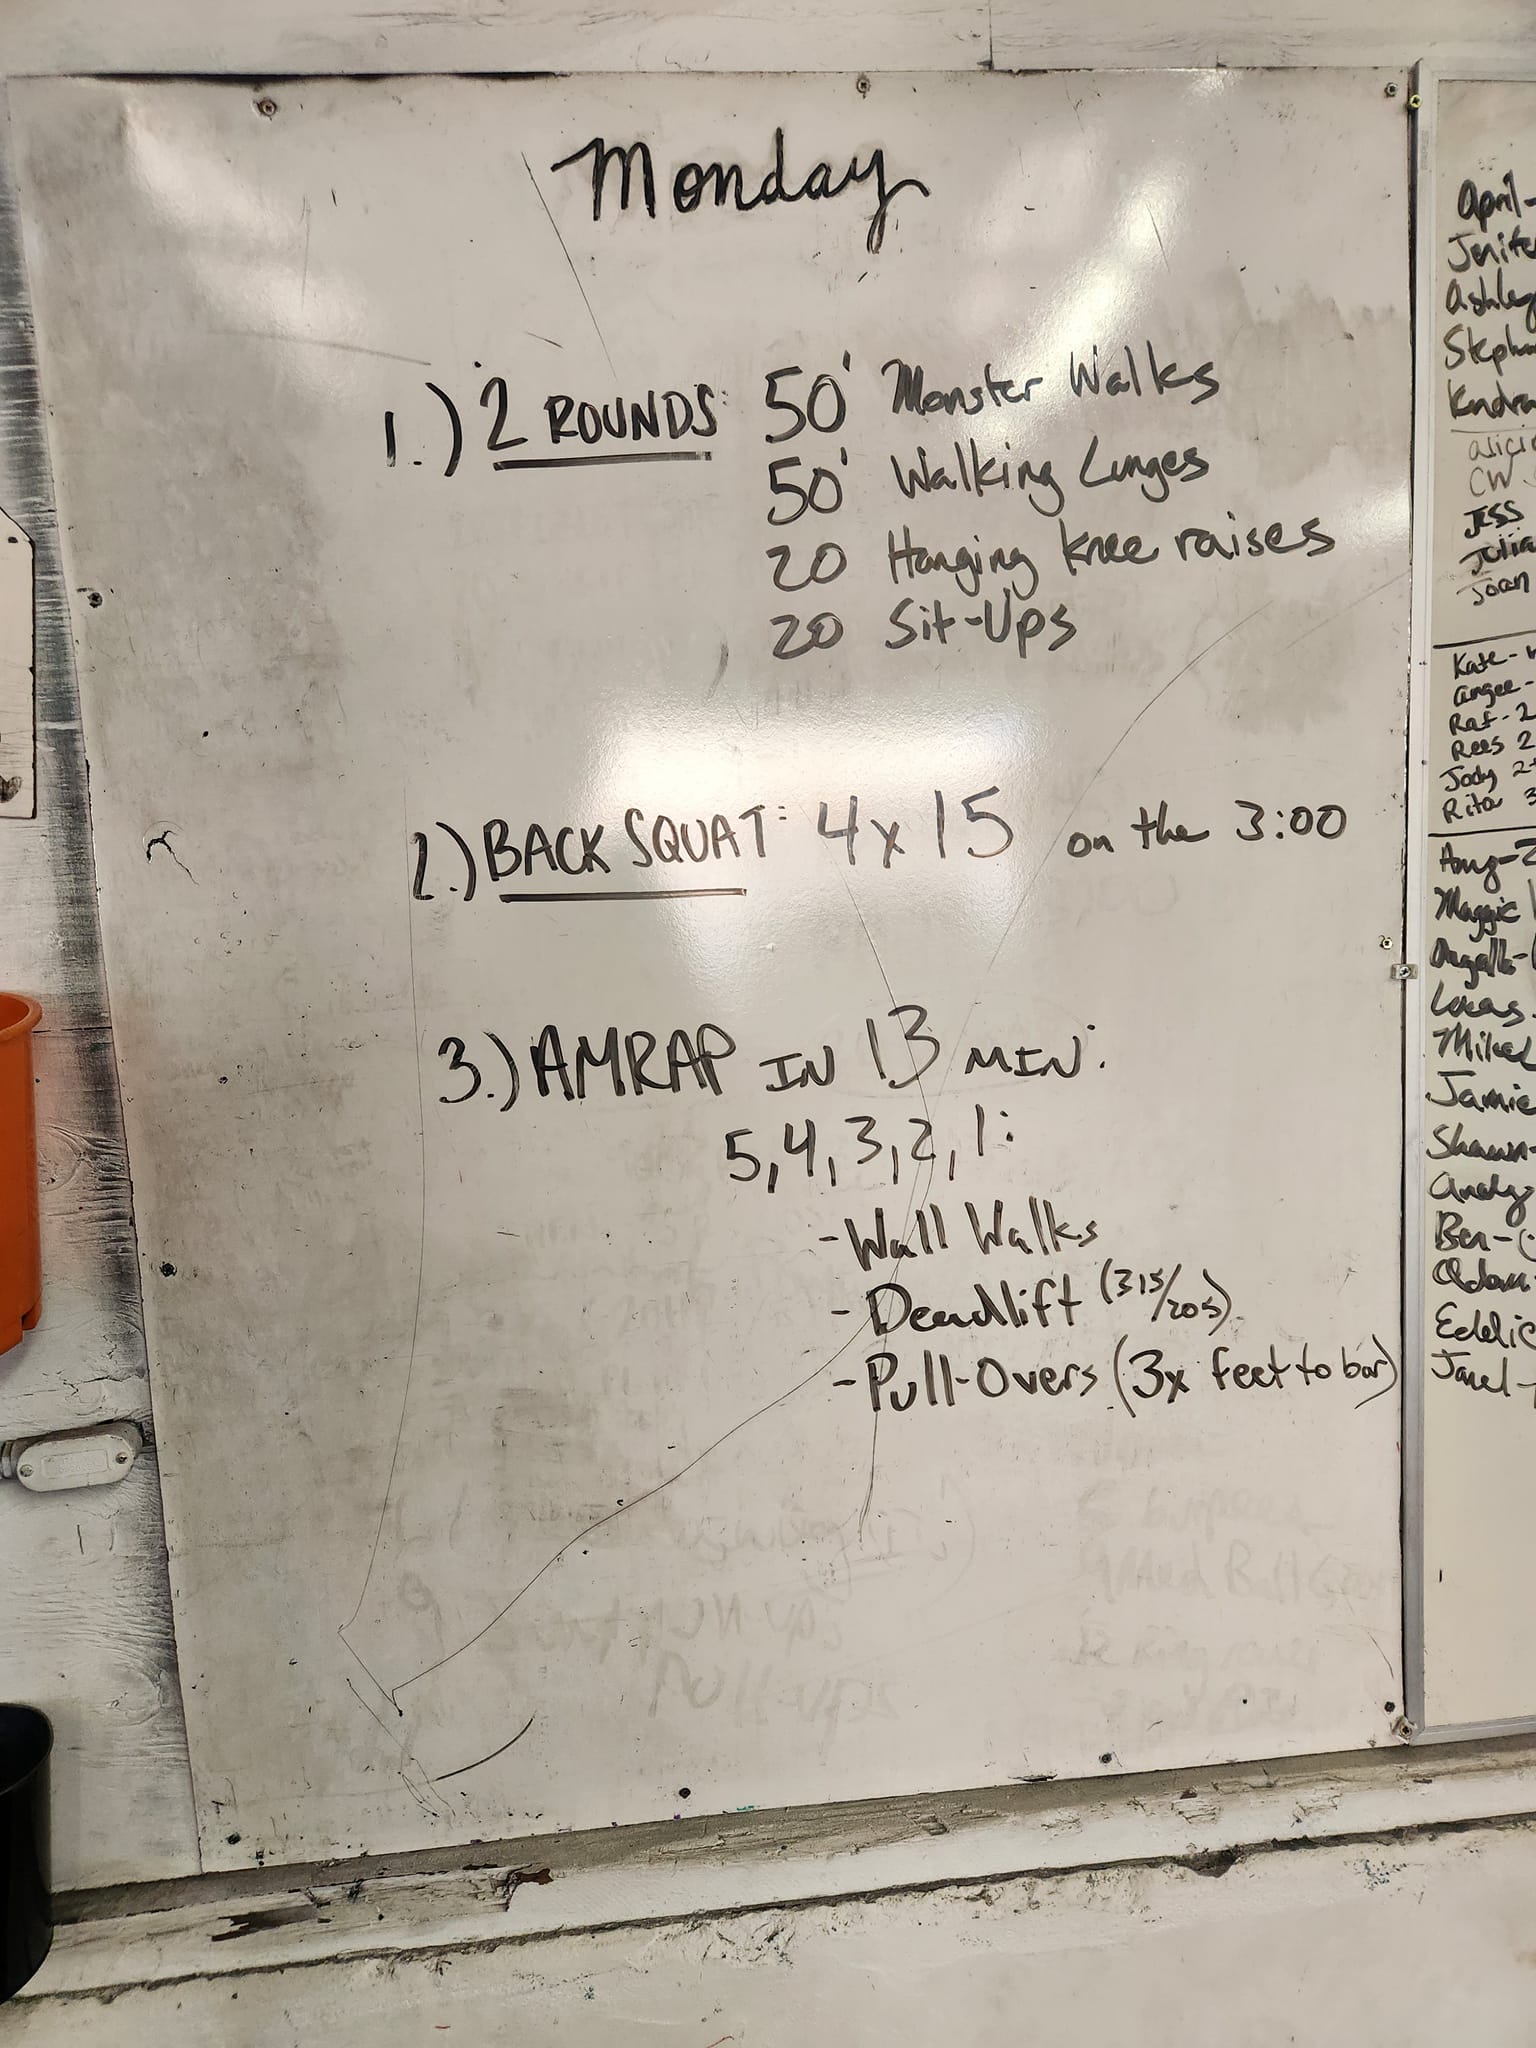 Monday
1.) 2 ROUNDS: 50' Monster Walks
50' Walking Lunges
20 Hanging knee raises
20 Sit-Ups
2.) BACK SQUAT: 4x15 on the 3:00
3.) AMRAP IN 13 MIN:
5, 4, 3, 2, 1:
- Wall Walks
- Deadlift (315/205)
- Pull-Overs (3x feet to bar)
April-
Jenife
Ashley
Steph
Kndra
alici
CW
JESS
Julia
Joan
Kate-
angee-
Raf-2
Rees 2
Jody 2
Rita 3
Amy-2
Maggie
Lucas
Jamie
Shawn-
Andy
Ben-
Adam
Eddie